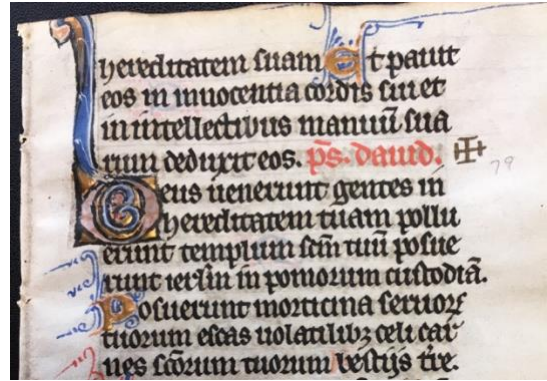 hereditatem suam Et pauit
eos in innocentia cordis sui et
in intellectibus manuū sua
rum deduxit eos. p̄s. dauid. 79
Deus uenerunt gentes in
hereditatem tuam pollu
erunt templum sc̄m tuū posue
runt ierl̄m in pomorum custodiā.
Posuerunt morticina seruorꝝ
tuorum escas uolatilibꝫ celi car
nes sc̄orum tuorum bestijs tr̄e.